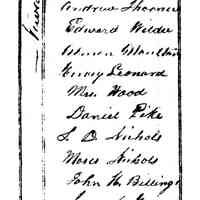 Andrew Thorne
Edward Wilde
Moulton
Henry Leonard
Mrs. Wood
Daniel Pike
S. D. Nichols
Moses Nichols
John H. Billing